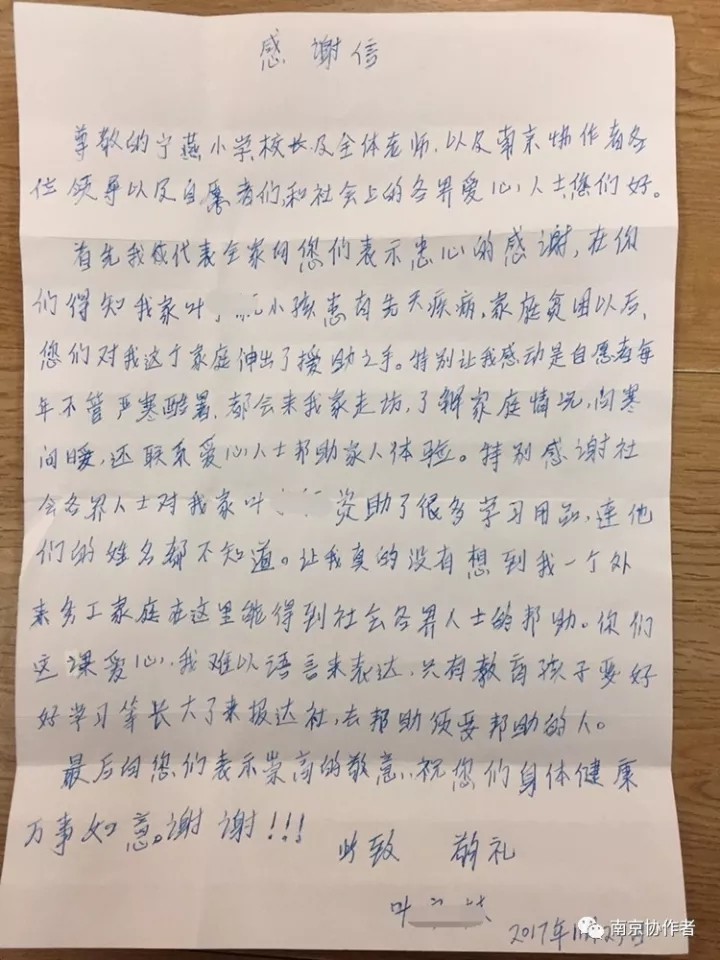 感谢信
尊敬的宁燕小学校长及全体老师.以及南京协作者各
位领导以及自愿者们,和社会上的各界爱心人士您们好。
首先我代表全家向您们表示忠心的感谢,在你
们得知我家叶 小孩患有先天疾病,家庭贫困以后,
您们对我这个家庭伸出了援助之手。特别让我感动是自愿者每
年不管严寒酷暑.都会来我家走坊,了解家庭情况,问寒
问暖,还联系爱心人士邦助家人体验。特别感谢社
会各界人士对我家叶 资助了很多学习用品,连他
们的姓名都不知道。让我真的没有想到我一个外
来务工家庭在这里能得到社会各界人士的邦助。你们
这课爱心,我难以语言来表达.只有教育孩子要好
好学习等长大了来报达社,去帮助须要邦助的人。
最后向您们表示崇高的敬意,祝您们身体健康
万事如意。谢谢!!!
此致 敬礼
叶
2017年11月
南京协作者